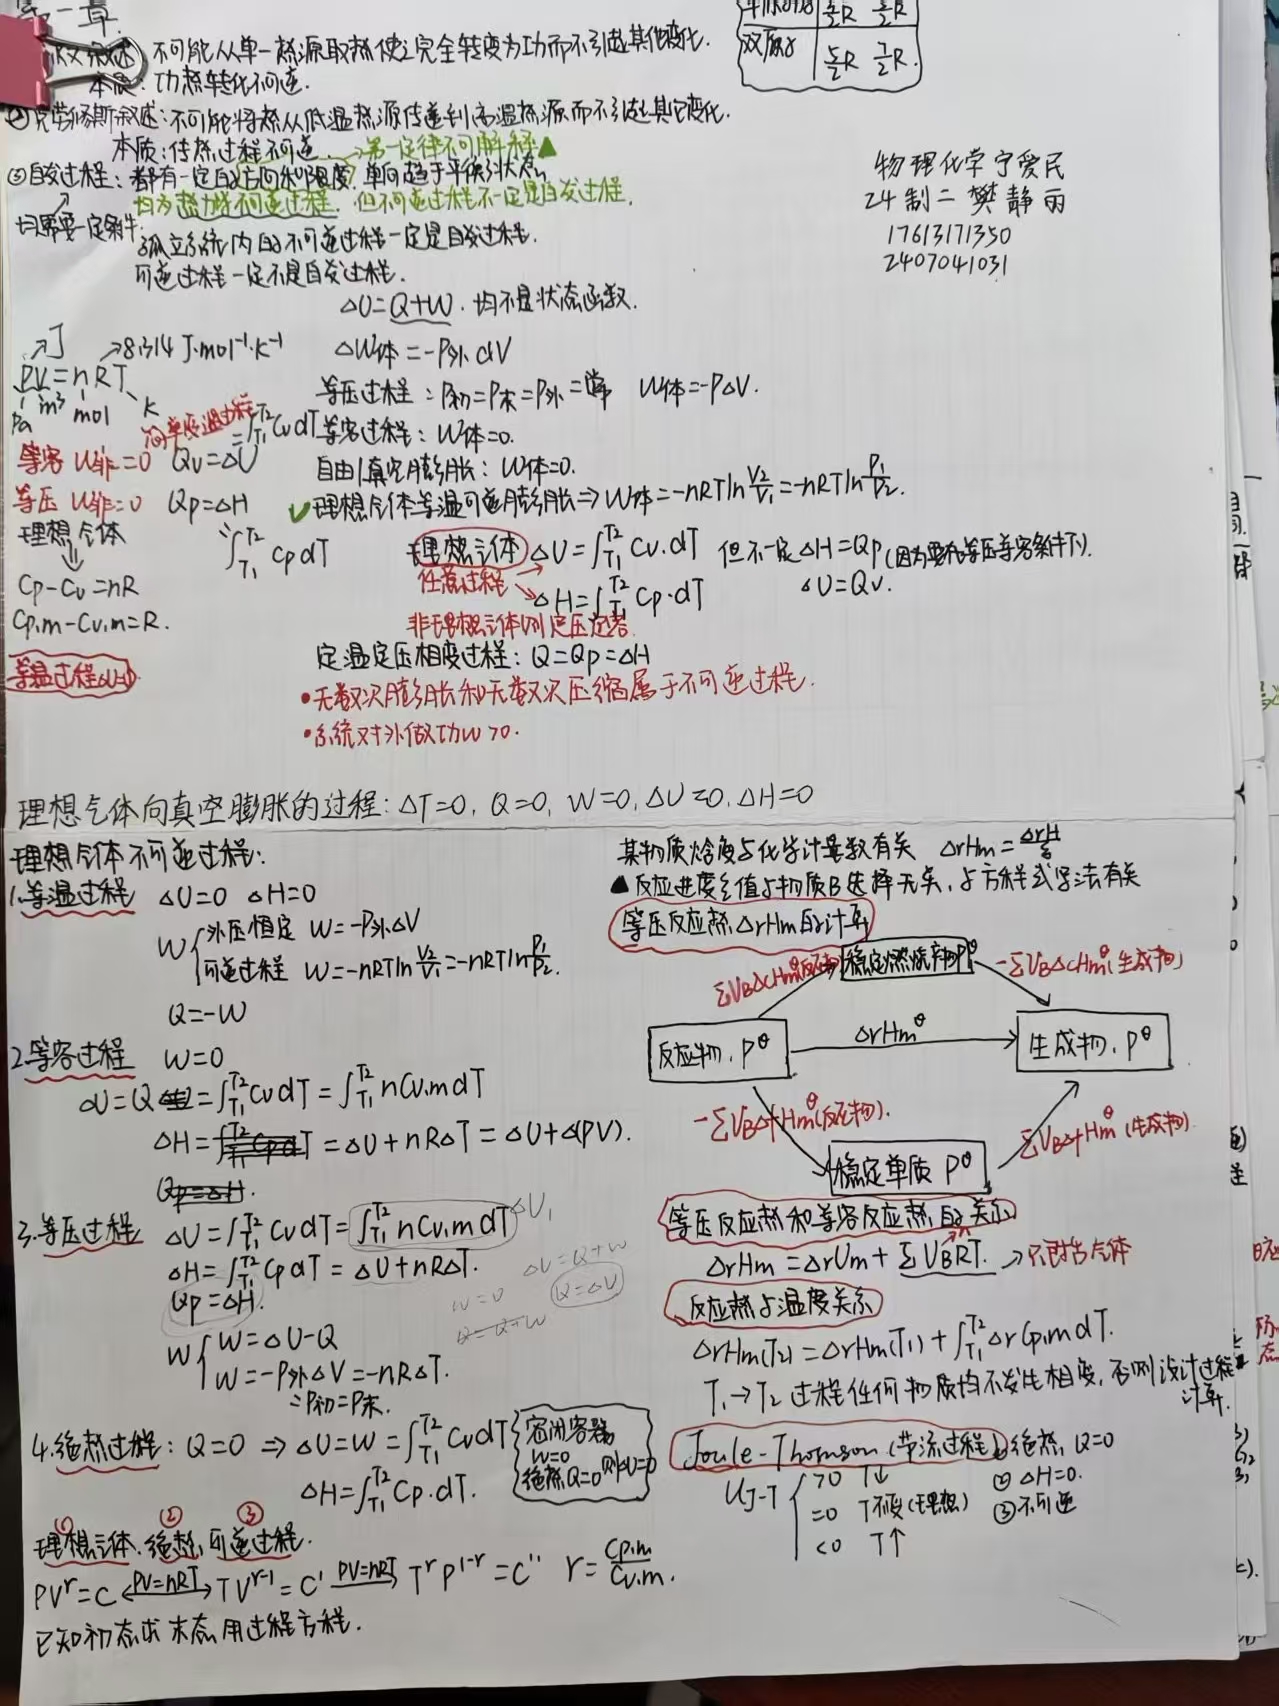 第一章
不可能从单一热源取热使之完全转变为功而不引起其他变化.
本质: 功热转化不可逆.
单原子分子 3/2R 5/2R
双原子 5/2R 7/2R
②克劳修斯叙述: 不可能将热从低温热源传递到高温热源而不引起其它变化.
本质: 传热过程不可逆 → 第一定律不可解释▲
③自发过程: 都有一定的方向和限度, 单向趋于平衡状态
均为热力学不可逆过程, 但不可逆过程不一定是自发过程.
均需要一定条件
孤立系统内的不可逆过程一定是自发过程.
可逆过程一定不是自发过程.
物理化学宁爱民
24制二樊静丽
17613171350
2407041031
ΔU=Q+W. 均不是状态函数.
↗J ↗8.314 J·mol⁻¹·K⁻¹
PV=nRT
Pa m³ mol K
ΔW体=-P外dV
等压过程: P初=P末=P外=常 W体=-PΔV.
简单变温过程
等容 W非=0 Qv=ΔU =∫T1T2 CvdT
等容过程: W体=0.
自由/真空膨胀: W体=0.
等压 W非=0 Qp=ΔH
∫T1T2 CpdT
✓理想气体等温可逆膨胀⇒W体=-nRTln V2/V1=-nRTln P1/P2.
理想气体
⇓
Cp-Cv=nR
Cp,m-Cv,m=R.
等温过程ΔU=0
理想气体 ΔU=∫T1T2 Cv·dT 但不一定ΔH=Qp(因为要在等压等容条件下).
任意过程 ΔH=∫T1T2 Cp·dT ΔU=Qv.
非理想气体则定压定容
定温定压相变过程: Q=Qp=ΔH
•无数次膨胀和无数次压缩属于不可逆过程.
•系统对外做功W>0.
理想气体向真空膨胀的过程: ΔT=0, Q=0, W=0, ΔU=0, ΔH=0
理想气体不可逆过程:
1.等温过程 ΔU=0 ΔH=0
W{外压恒定 W=-P外ΔV
可逆过程 W=-nRTln V2/V1=-nRTln P1/P2.
Q=-W
2.等容过程 W=0
ΔU=Q =∫T1T2 CvdT=∫T1T2 nCv,mdT
ΔH= =ΔU+nRΔT=ΔU+Δ(PV).
Qp=ΔH.
3.等压过程 ΔU=∫T1T2 CvdT=∫T1T2 nCv,mdT ΔU,
ΔH=∫T1T2 CpdT=ΔU+nRΔT.
Qp=ΔH.
ΔU=Q+W
W=0 Q=ΔU
Q=Q+W
W{W=ΔU-Q
W=-P外ΔV=-nRΔT.
=P初=P末.
4.绝热过程: Q=0 ⇒ΔU=W=∫T1T2 CvdT
ΔH=∫T1T2 Cp·dT.
密闭容器
W=0
绝热Q=0则ΔU=0
① ② ③
理想气体, 绝热, 可逆过程.
PVʳ=C ←PV=nRT→ TVʳ⁻¹=C' PV=nRT→ TʳP¹⁻ʳ=C'' r=Cp,m/Cv,m.
已知初态求末态用过程方程.
某物质焓变与化学计量数有关 ΔrHm=ΔrH/ξ
▲反应进度ξ值与物质B选择无关, 与方程式写法有关
等压反应热ΔrHm的计算
ΣVBΔcHm(反应物) 稳定燃烧产物Pθ -ΣVBΔcHmθ(生成物)
反应物, Pθ ΔrHmθ 生成物, Pθ
-ΣVBΔfHmθ(反应物). ΣVBΔfHmθ(生成物)
稳定单质 Pθ
等压反应热和等容反应热的关系
ΔrHm=ΔrUm+ΣVBRT. →只对与气体
反应热与温度关系
ΔrHm(T2)=ΔrHm(T1)+∫T1T2 ΔrCp,mdT.
T1→T2过程任何物质均不发生相变, 否则设计过程计算.
Joule-Thomson(节流过程) ①绝热, Q=0
②ΔH=0.
③不可逆
UJ-T{>0 T↓
=0 T不变(理想)
<0 T↑